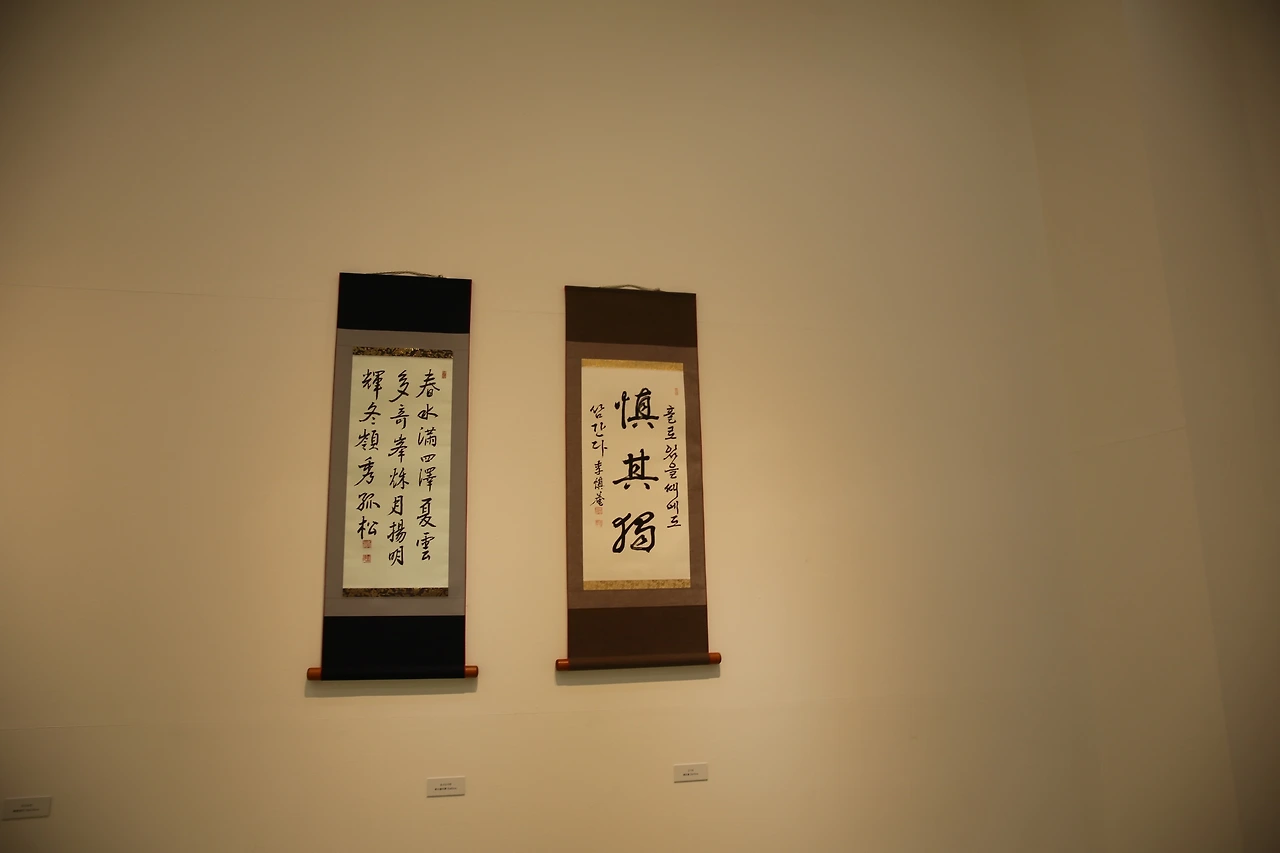 春水滿四澤夏雲
多奇峯秋月揚明
輝冬嶺秀孤松
홀로 있을 때에도
愼其獨
삼간다 李愼菴